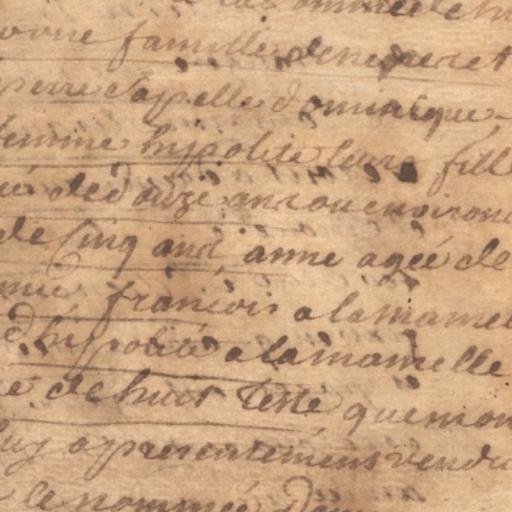 famille de negres et
pere s'apelle dominique
femme hipolite leurs fille
de douze ans ou environ
de Cinq ans anne agée de
françois a la mamel
d'hipolite a la mamelle
de huit teste que mon
luy a presentement vendu
ce nommée